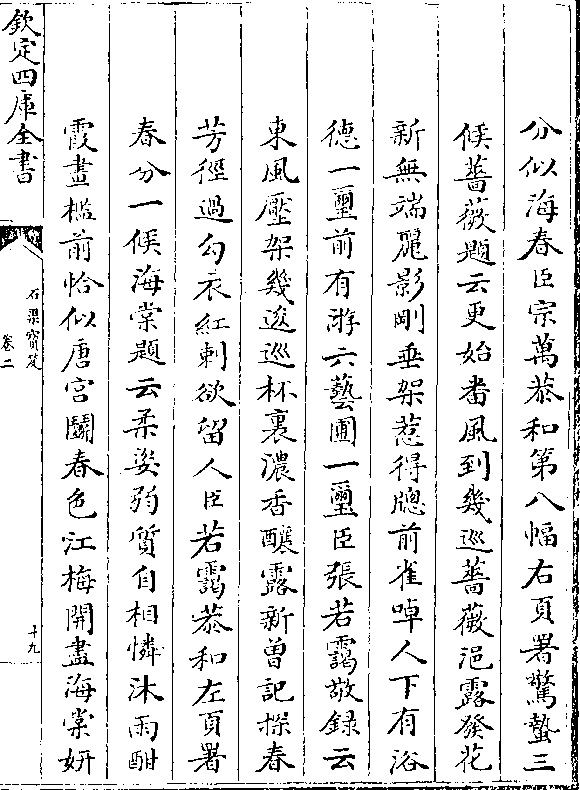 分似海春臣宗萬恭和第八幅右頁署驚蟄三
候薔薇題云更始畨風到幾巡薔薇浥露發花
新無端麗影剛垂架惹得牕前雀啅人下有浴
德一璽前有游六藝圃一璽臣張若靄敬録云
東風壓架幾逡巡杯裏濃香釀露新曽記探春
芳徑過勾衣紅刺欲留人臣若靄恭和左頁署
春分一候海棠題云柔姿弱質自相憐沐雨酣
霞畫檻前恰似唐宫鬬春色江梅開盡海棠妍
欽定四庫全書
石渠寳笈
卷二
十九